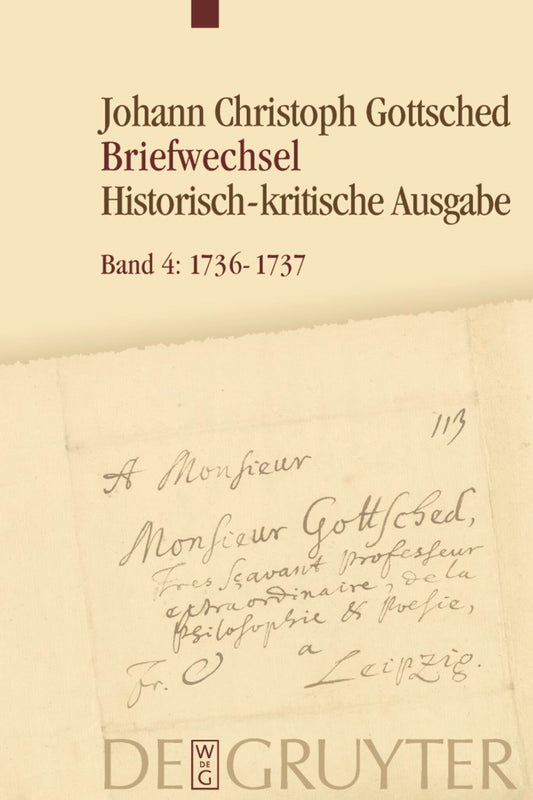 Johann Christoph Gottsched
Briefwechsel
Historisch-kritische Ausgabe
Band 4: 1736-1737
113
A Monsieur
Monsieur Gottsched,
Tres sçavant Professeur
extraordinaire, de la
Philosophie & Poesie,
a
Fr.
Leipzig.
DE GRUYTER
W
DE
G